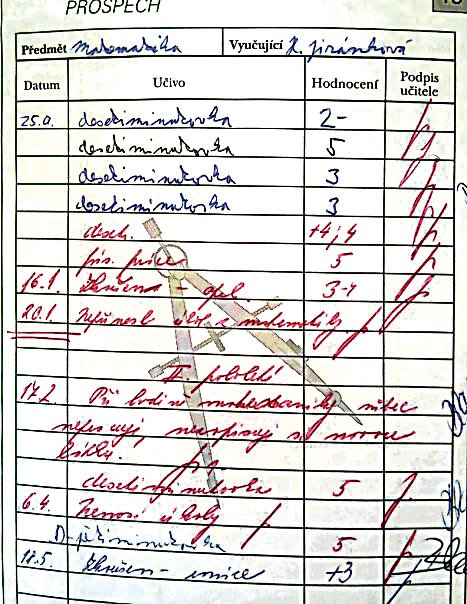 PROSPĚCH
Předmět Matematika Vyučující K. Jiránková
Datum Učivo Hodnocení Podpis učitele
25.9. desetiminutovka 2-
desetiminutovka 5
desetiminutovka 3
desetiminutovka 3
deset. +4; 4
pís. práce 5
16.1. Zkoušení - 3-
20.1. Nepřinesl úkol z matematiky.
II. pololetí
17.2. Při hodině vůbec
nepracuje,
desetiminutovka 5
6.4. Nenosí úkoly
D- pětiminutovka 5
18.5. Zkoušení - +3